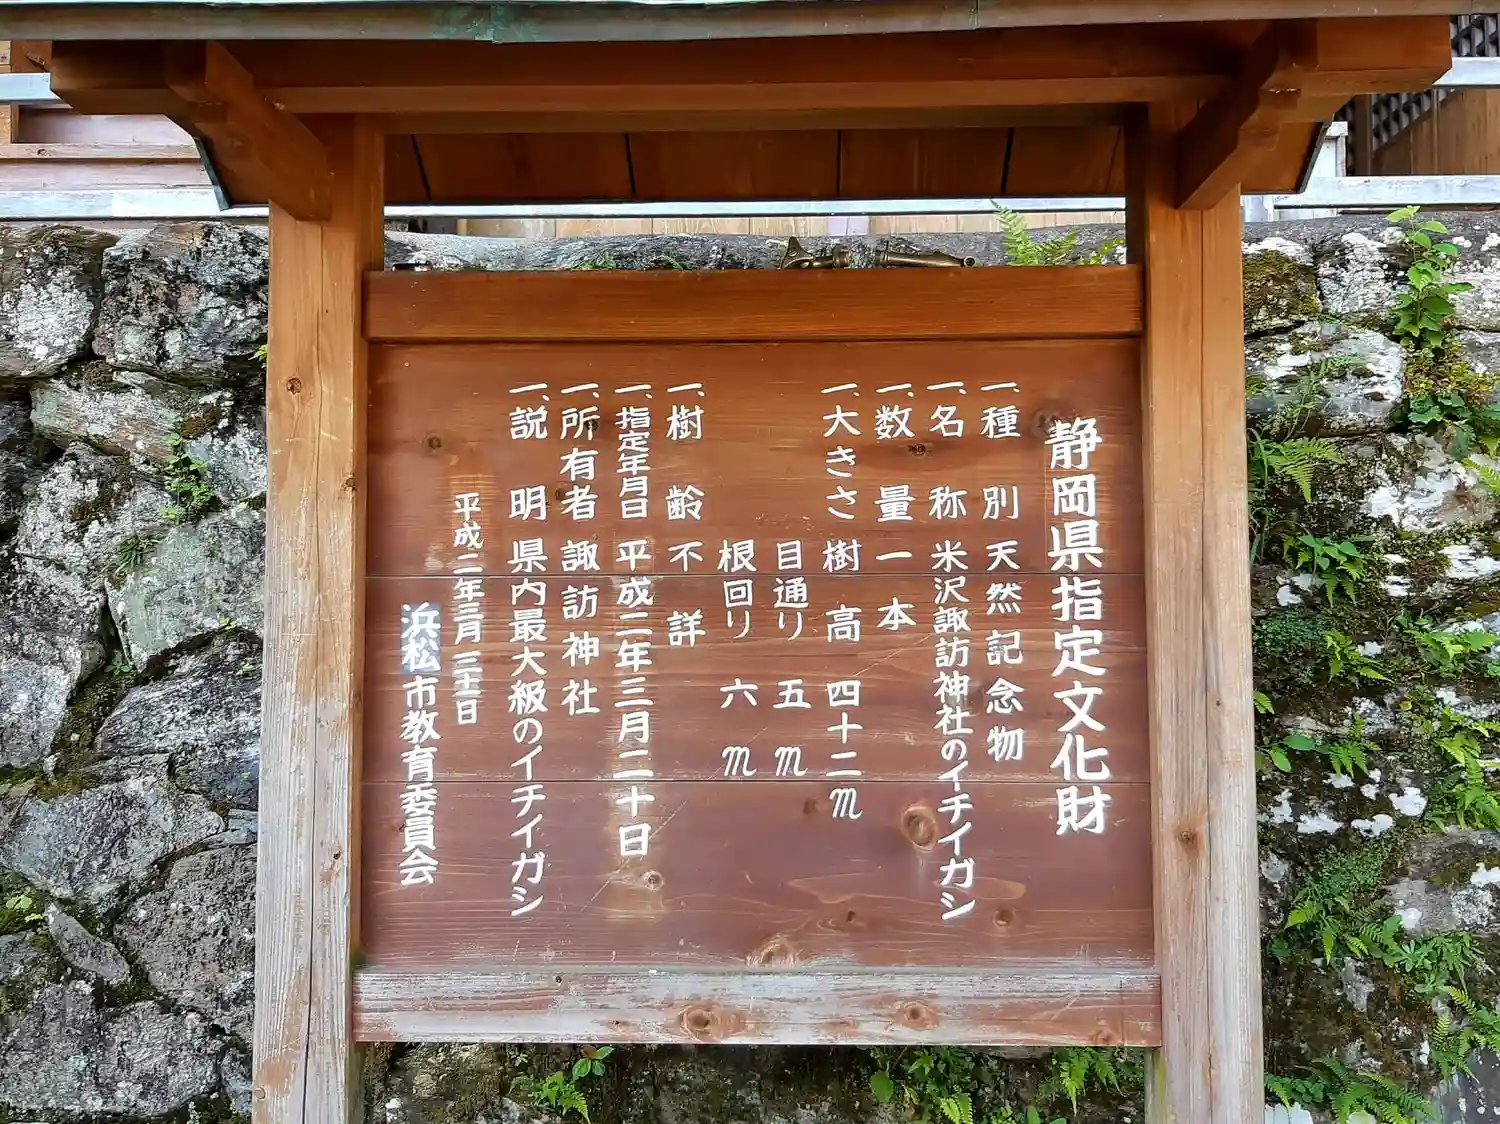 静岡県指定文化財
一、種別 天然記念物
一、名称 米沢諏訪神社のイチイガシ
一、数量 一本
一、大きさ 樹高 四十二m
目通り 五m
根回り 六m
一、樹齢 不詳
一、指定年月日 平成二年三月二十日
一、所有者 諏訪神社
一、説明 県内最大級のイチイガシ
平成二年三月三十一日
浜松市教育委員会